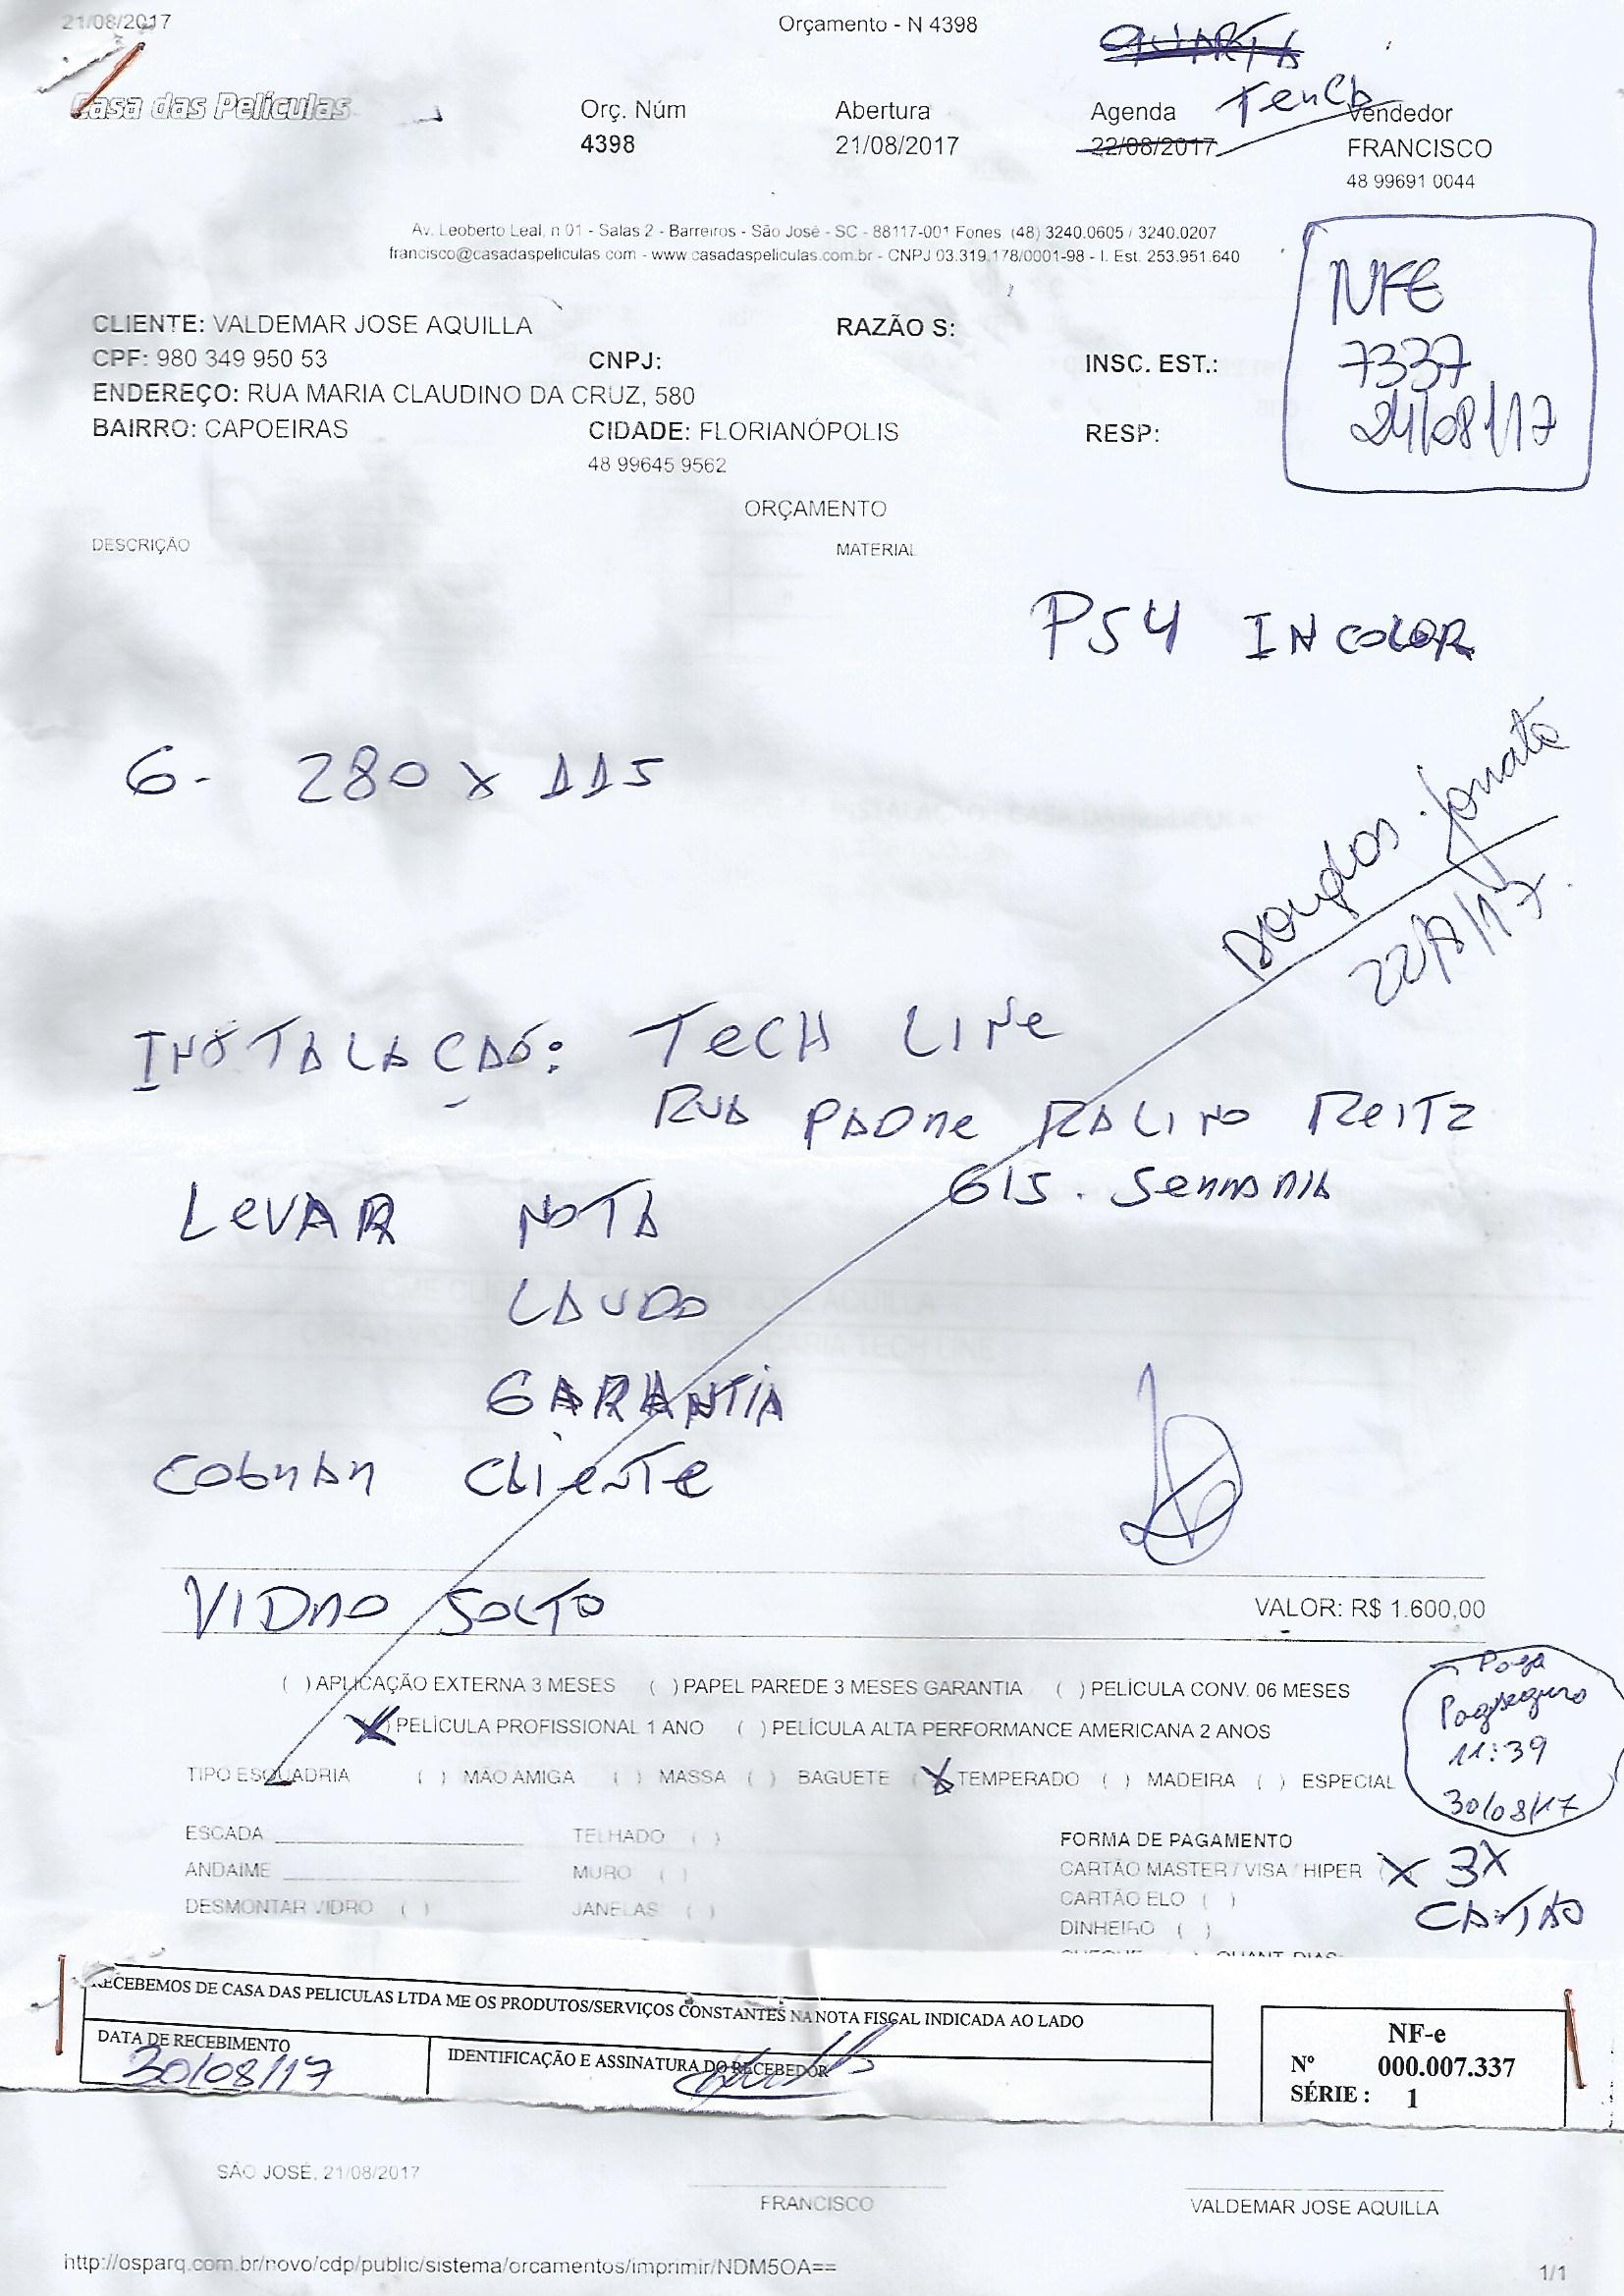 21/08/2017
Orçamento - N 4398
QUARTA
Casa das Películas
Orç. Núm
Abertura
Agenda
Vendedor
4398
21/08/2017
22/08/2017
FRANCISCO
48 99691 0044
Av. Leoberto Leal, n 01 - Salas 2 - Barreiros - São José - SC - 88117-001 Fones (48) 3240.0605 / 3240.0207
francisco@casadaspeliculas.com - www.casadaspeliculas.com.br - CNPJ 03.319.178/0001-98 - I. Est. 253.951.640
NFE
7337
24/08/17
CLIENTE: VALDEMAR JOSE AQUILLA
RAZÃO S:
CPF: 980 349 950 53
CNPJ:
INSC. EST.:
ENDEREÇO: RUA MARIA CLAUDINO DA CRUZ, 580
BAIRRO: CAPOEIRAS
CIDADE: FLORIANÓPOLIS
RESP:
48 99645 9562
ORÇAMENTO
DESCRIÇÃO
MATERIAL
PS4 INCOLOR
6- 280 x 115
22/8/17
INSTALAÇÃO: TECH LINE
RUA PADRE RALINO REITZ
615. SERRARIA
LEVAR NOTA
LAUDO
GARANTIA
COBRAR CLIENTE
VIDRO SOLTO
VALOR: R$ 1.600,00
( ) APLICAÇÃO EXTERNA 3 MESES ( ) PAPEL PAREDE 3 MESES GARANTIA ( ) PELÍCULA CONV. 06 MESES
(X) PELÍCULA PROFISSIONAL 1 ANO ( ) PELÍCULA ALTA PERFORMANCE AMERICANA 2 ANOS
TIPO ESQUADRIA ( ) MÃO AMIGA ( ) MASSA ( ) BAGUETE (X) TEMPERADO ( ) MADEIRA ( ) ESPECIAL
Paga
Pagseguro
11:39
30/08/17
ESCADA
TELHADO ( )
FORMA DE PAGAMENTO
ANDAIME
MURO ( )
CARTÃO MASTER / VISA / HIPER (X 3X
DESMONTAR VIDRO ( )
JANELAS ( )
CARTÃO ELO ( )
CARTÃO
DINHEIRO ( )
RECEBEMOS DE CASA DAS PELICULAS LTDA ME OS PRODUTOS/SERVIÇOS CONSTANTES NA NOTA FISCAL INDICADA AO LADO
DATA DE RECEBIMENTO
30/08/17
IDENTIFICAÇÃO E ASSINATURA DO RECEBEDOR
NF-e
Nº 000.007.337
SÉRIE : 1
SÃO JOSÉ, 21/08/2017
FRANCISCO
VALDEMAR JOSE AQUILLA
http://osparq.com.br/novo/cdp/public/sistema/orcamentos/imprimir/NDM5OA==
1/1